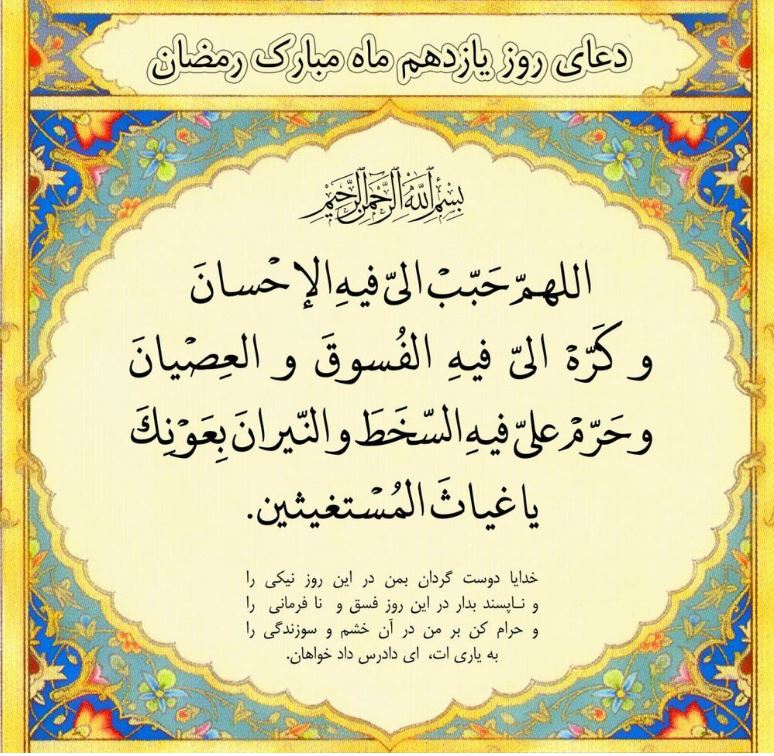 دعای روز یازدهم ماه مبارک رمضان
بسم الله الرحمن الرحیم
اللهمّ حَبّبْ الیّ فیهِ الإحْسانَ
و کَرّهْ الیّ فیهِ الفُسوقَ و العِصْیانَ
و حَرّمْ علیّ فیهِ السّخَطَ و النّیرانَ بِعَوْنِكَ
یا غیاثَ المُسْتغیثین.
خدایا دوست گردان بمن در این روز نیکی را
و ناپسند بدار در این روز فسق و نا فرمانی را
و حرام کن بر من در آن خشم و سوزندگی را
به یاری ات، ای دادرس داد خواهان.